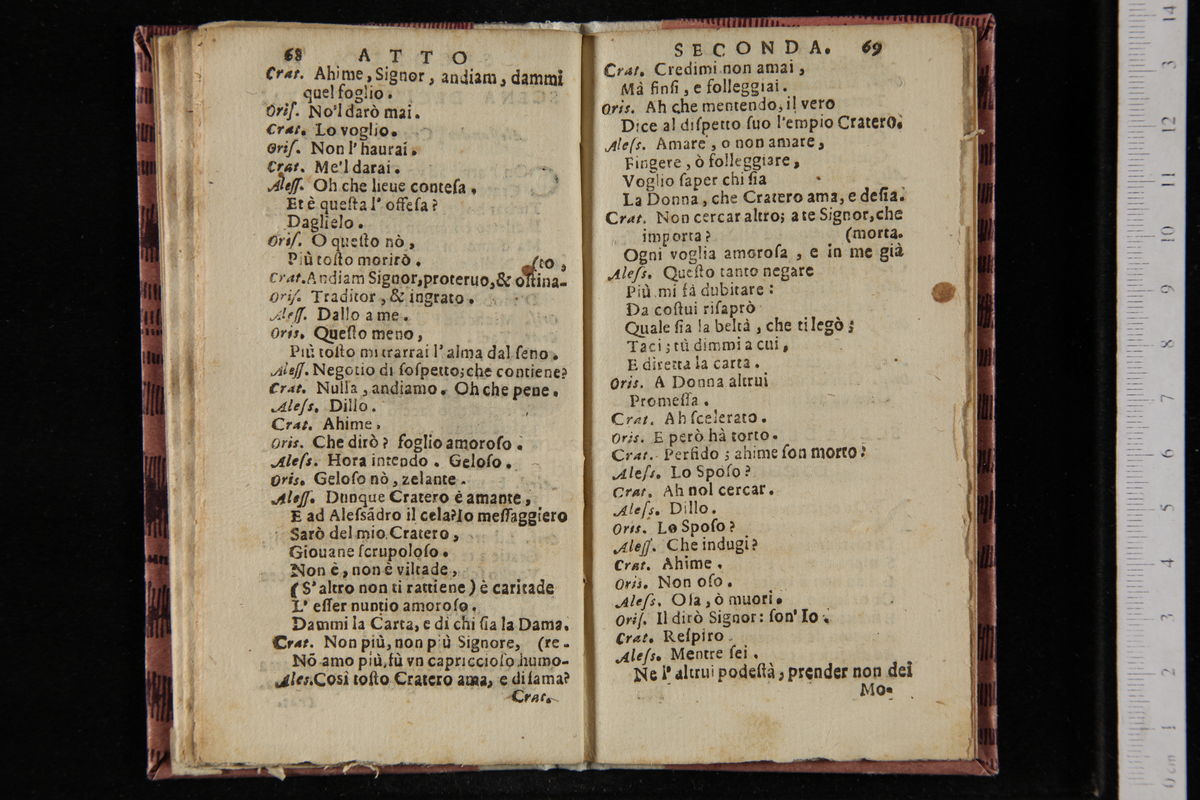 68 ATTO
Crat. Ahime, Signor, andiam, dammi
quel foglio.
Oriſ. No'l darò mai.
Crat. Lo voglio.
Oriſ. Non l'haurai.
Crat. Me'l darai.
Aleſſ. Oh che lieue conteſa.
Et è queſta l' offeſa?
Daglielo.
Oriſ. O queſto nò,
Più toſto morirò. (to,
Crat. Andiam Signor, proteruo, & oſtina-
Oriſ. Traditor, & ingrato.
Aleſſ. Dallo a me.
Oris. Queſto meno,
Più toſto mi trarrai l' alma dal ſeno.
Aleſſ. Negotio di ſoſpetto; che contiene?
Crat. Nulla, andiamo. Oh che pene.
Aleſs. Dillo.
Crat. Ahime,
Oris. Che dirò? foglio amoroſo.
Aleſs. Hora intendo. Geloſo.
Oris. Geloſo nò, zelante.
Aleſſ. Dunque Cratero è amante,
E ad Aleſsãdro il cela? Io meſſaggiero
Sarò del mio Cratero,
Giouane ſcrupoloſo.
Non è, non è viltade,
(S' altro non ti rattiene) è caritade
L' eſſer nuntio amoroſo.
Dammi la Carta, e di chi ſia la Dama.
Crat. Non più, non più Signore, (re-
Nõ amo più, fù vn capriccioſo humo-
Ales. Così toſto Cratero ama, e diſama?
Crat.
SECONDA. 69
Crat. Credimi non amai,
Mà finſi, e folleggiai.
Oris. Ah che mentendo, il vero
Dice al diſpetto ſuo l'empio Cratero.
Aleſs. Amare, o non amare,
Fingere, ò folleggiare,
Voglio ſaper chi ſia
La Donna, che Cratero ama, e deſia.
Crat. Non cercar altro; a te Signor, che
importa? (morta.
Ogni voglia amoroſa, e in me già
Aleſs. Queſto tanto negare
Più mi fà dubitare:
Da coſtui riſaprò
Quale ſia la beltà, che ti legò;
Taci; tù dimmi a cui,
E diretta la carta.
Oris. A Donna altrui
Promeſſa.
Crat. Ah ſcelerato.
Oris. E però hà torto.
Crat. Perfido; ahime ſon morto!
Aleſs. Lo Spoſo?
Crat. Ah nol cercar.
Aleſs. Dillo.
Oris. Lo Spoſo?
Aleſſ. Che indugi?
Crat. Ahime.
Oris. Non oſo.
Aleſs. Oſa, ò muori.
Oriſ. Il dirò Signor: ſon' Io.
Crat. Reſpiro
Aleſs. Mentre ſei.
Ne l' altrui podeſtà, prender non dei
Mo-
14
13
12
11
10
9
8
7
6
5
4
3
2
1
0 cm